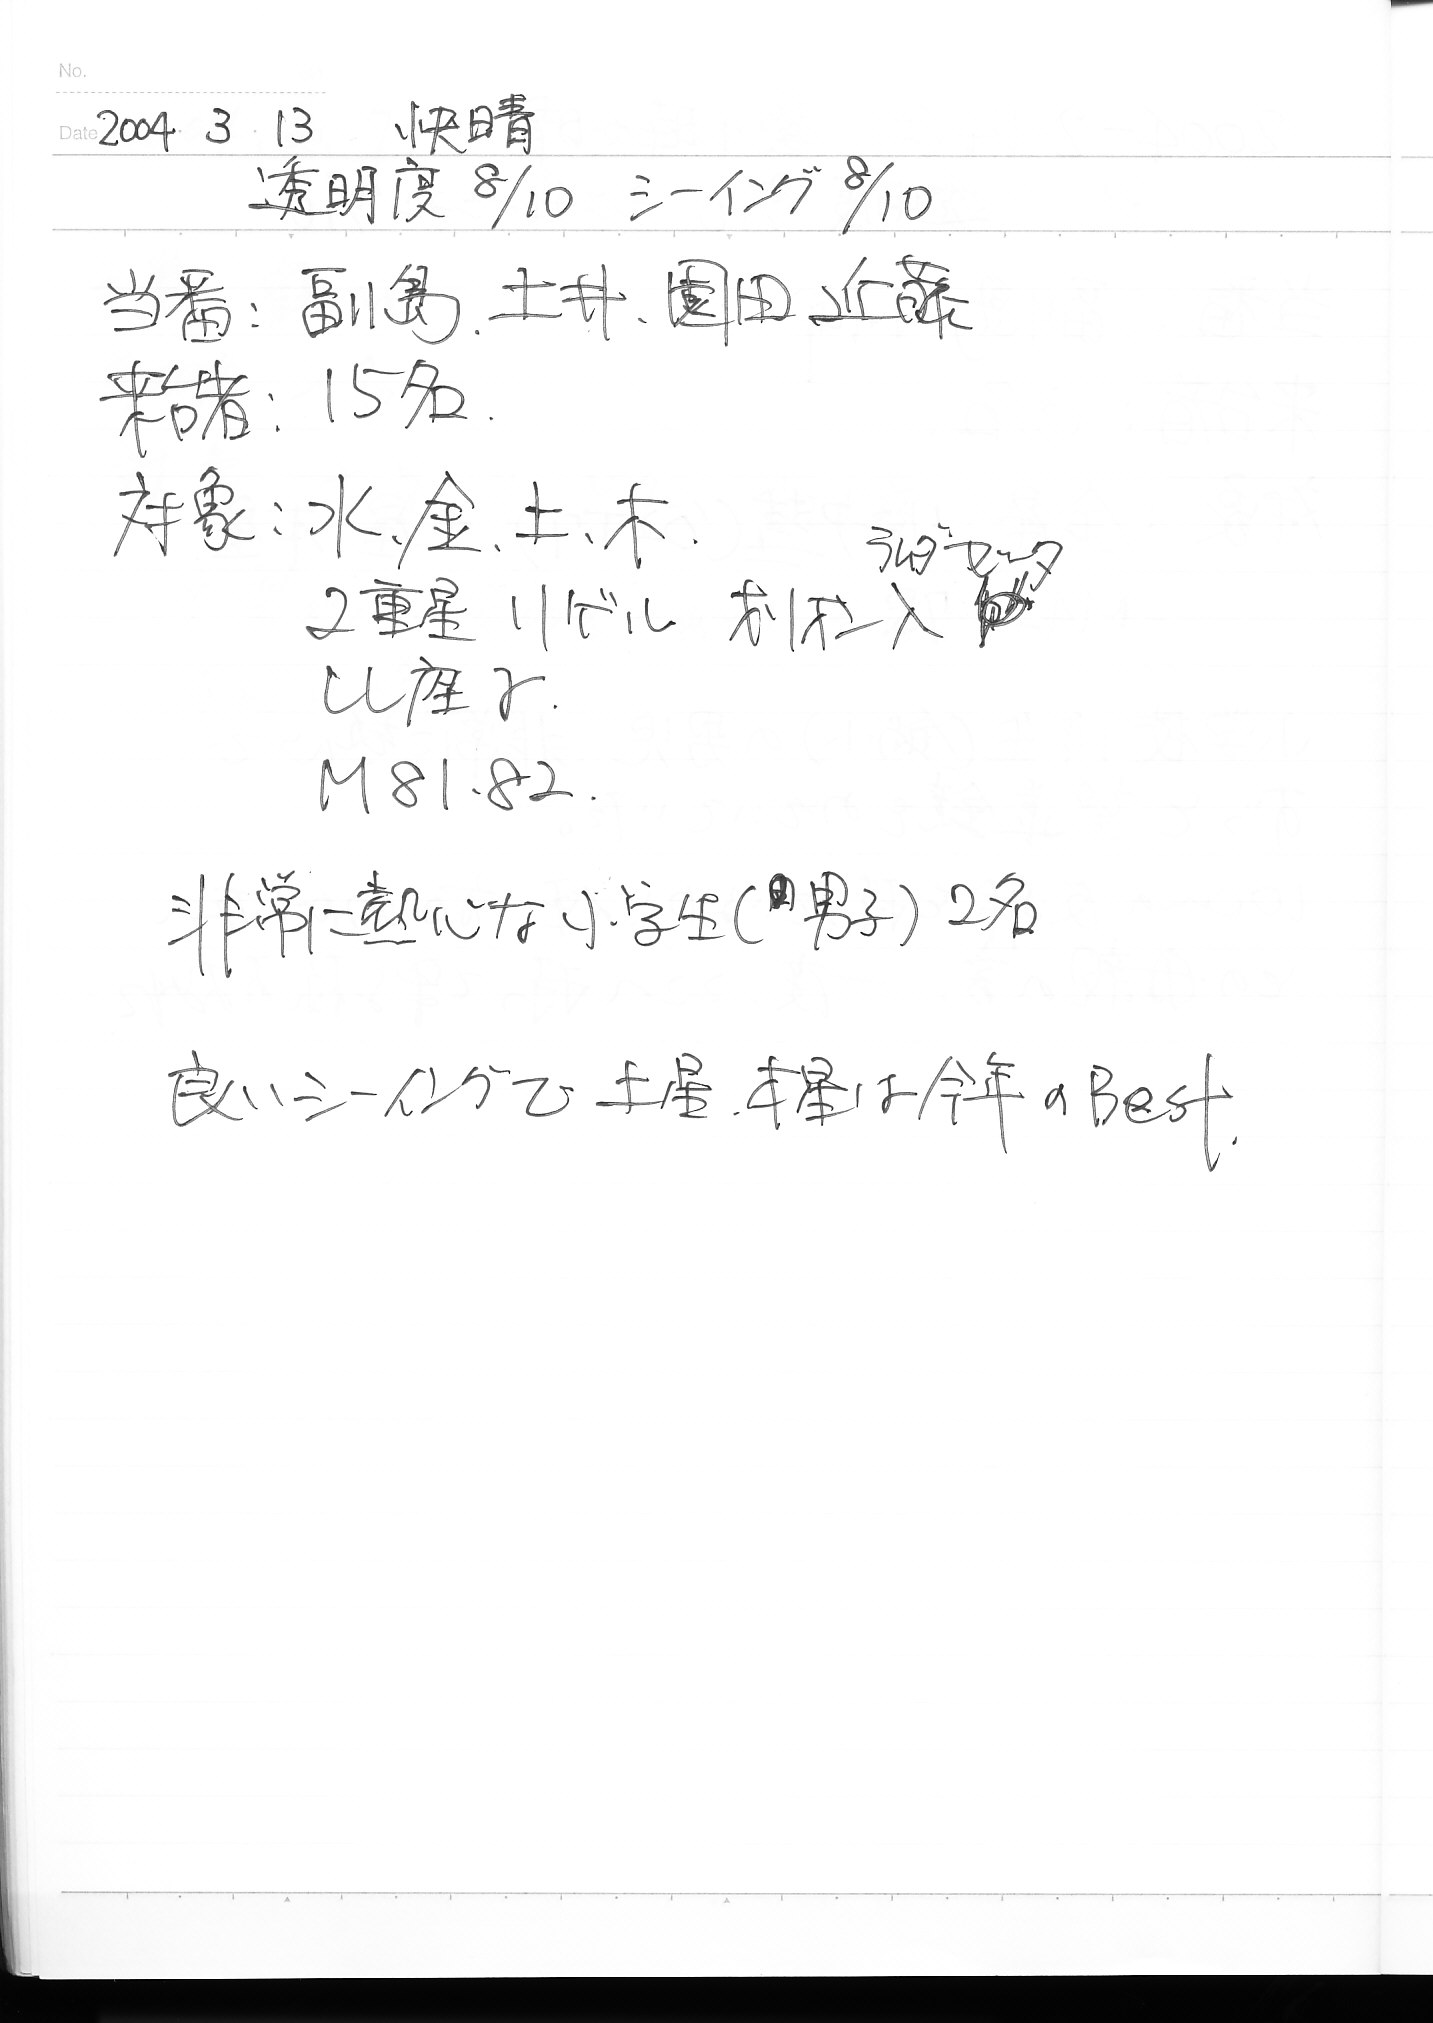 No.
Date 2004 3 13 快晴
透明度 8/10 シーイング 8/10
当番: 副島、土井、園田 近藤
来台者: 15名.
対象: 水、金、土、木.
2重星 リゲル オリオン λ
しし座γ.
M81.82.
非常に熱心な小学生(男子) 2名
良いシーイングで 土星、木星は今年のBest.